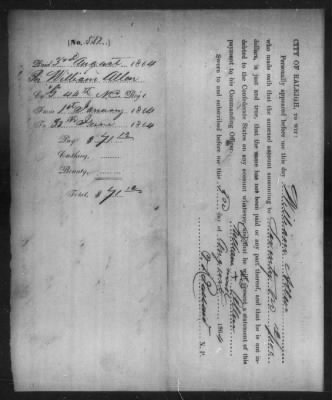 [No. 522.]
Dated 3rd August 1864
William Allen
Co. G 44th N.C. Regt
From 1st January 1864
To 30th June 1864
Pay: $71
Clothing,
Bounty,
Total, $71
CITY OF RALEIGH, TO WIT:
Personally appeared before me this day William Allen
who made oath that the annexed account amounting to Seventy
dollars, is just and true, that the same has not been paid or any part thereof, and that he is not in-
debted to the Confederate States on any account whatever, and that he will present a statement of this
payment to his Commanding Officer.
William X Allen
mark
Sworn to and subscribed before me this 3rd day of August 1864
N. P.